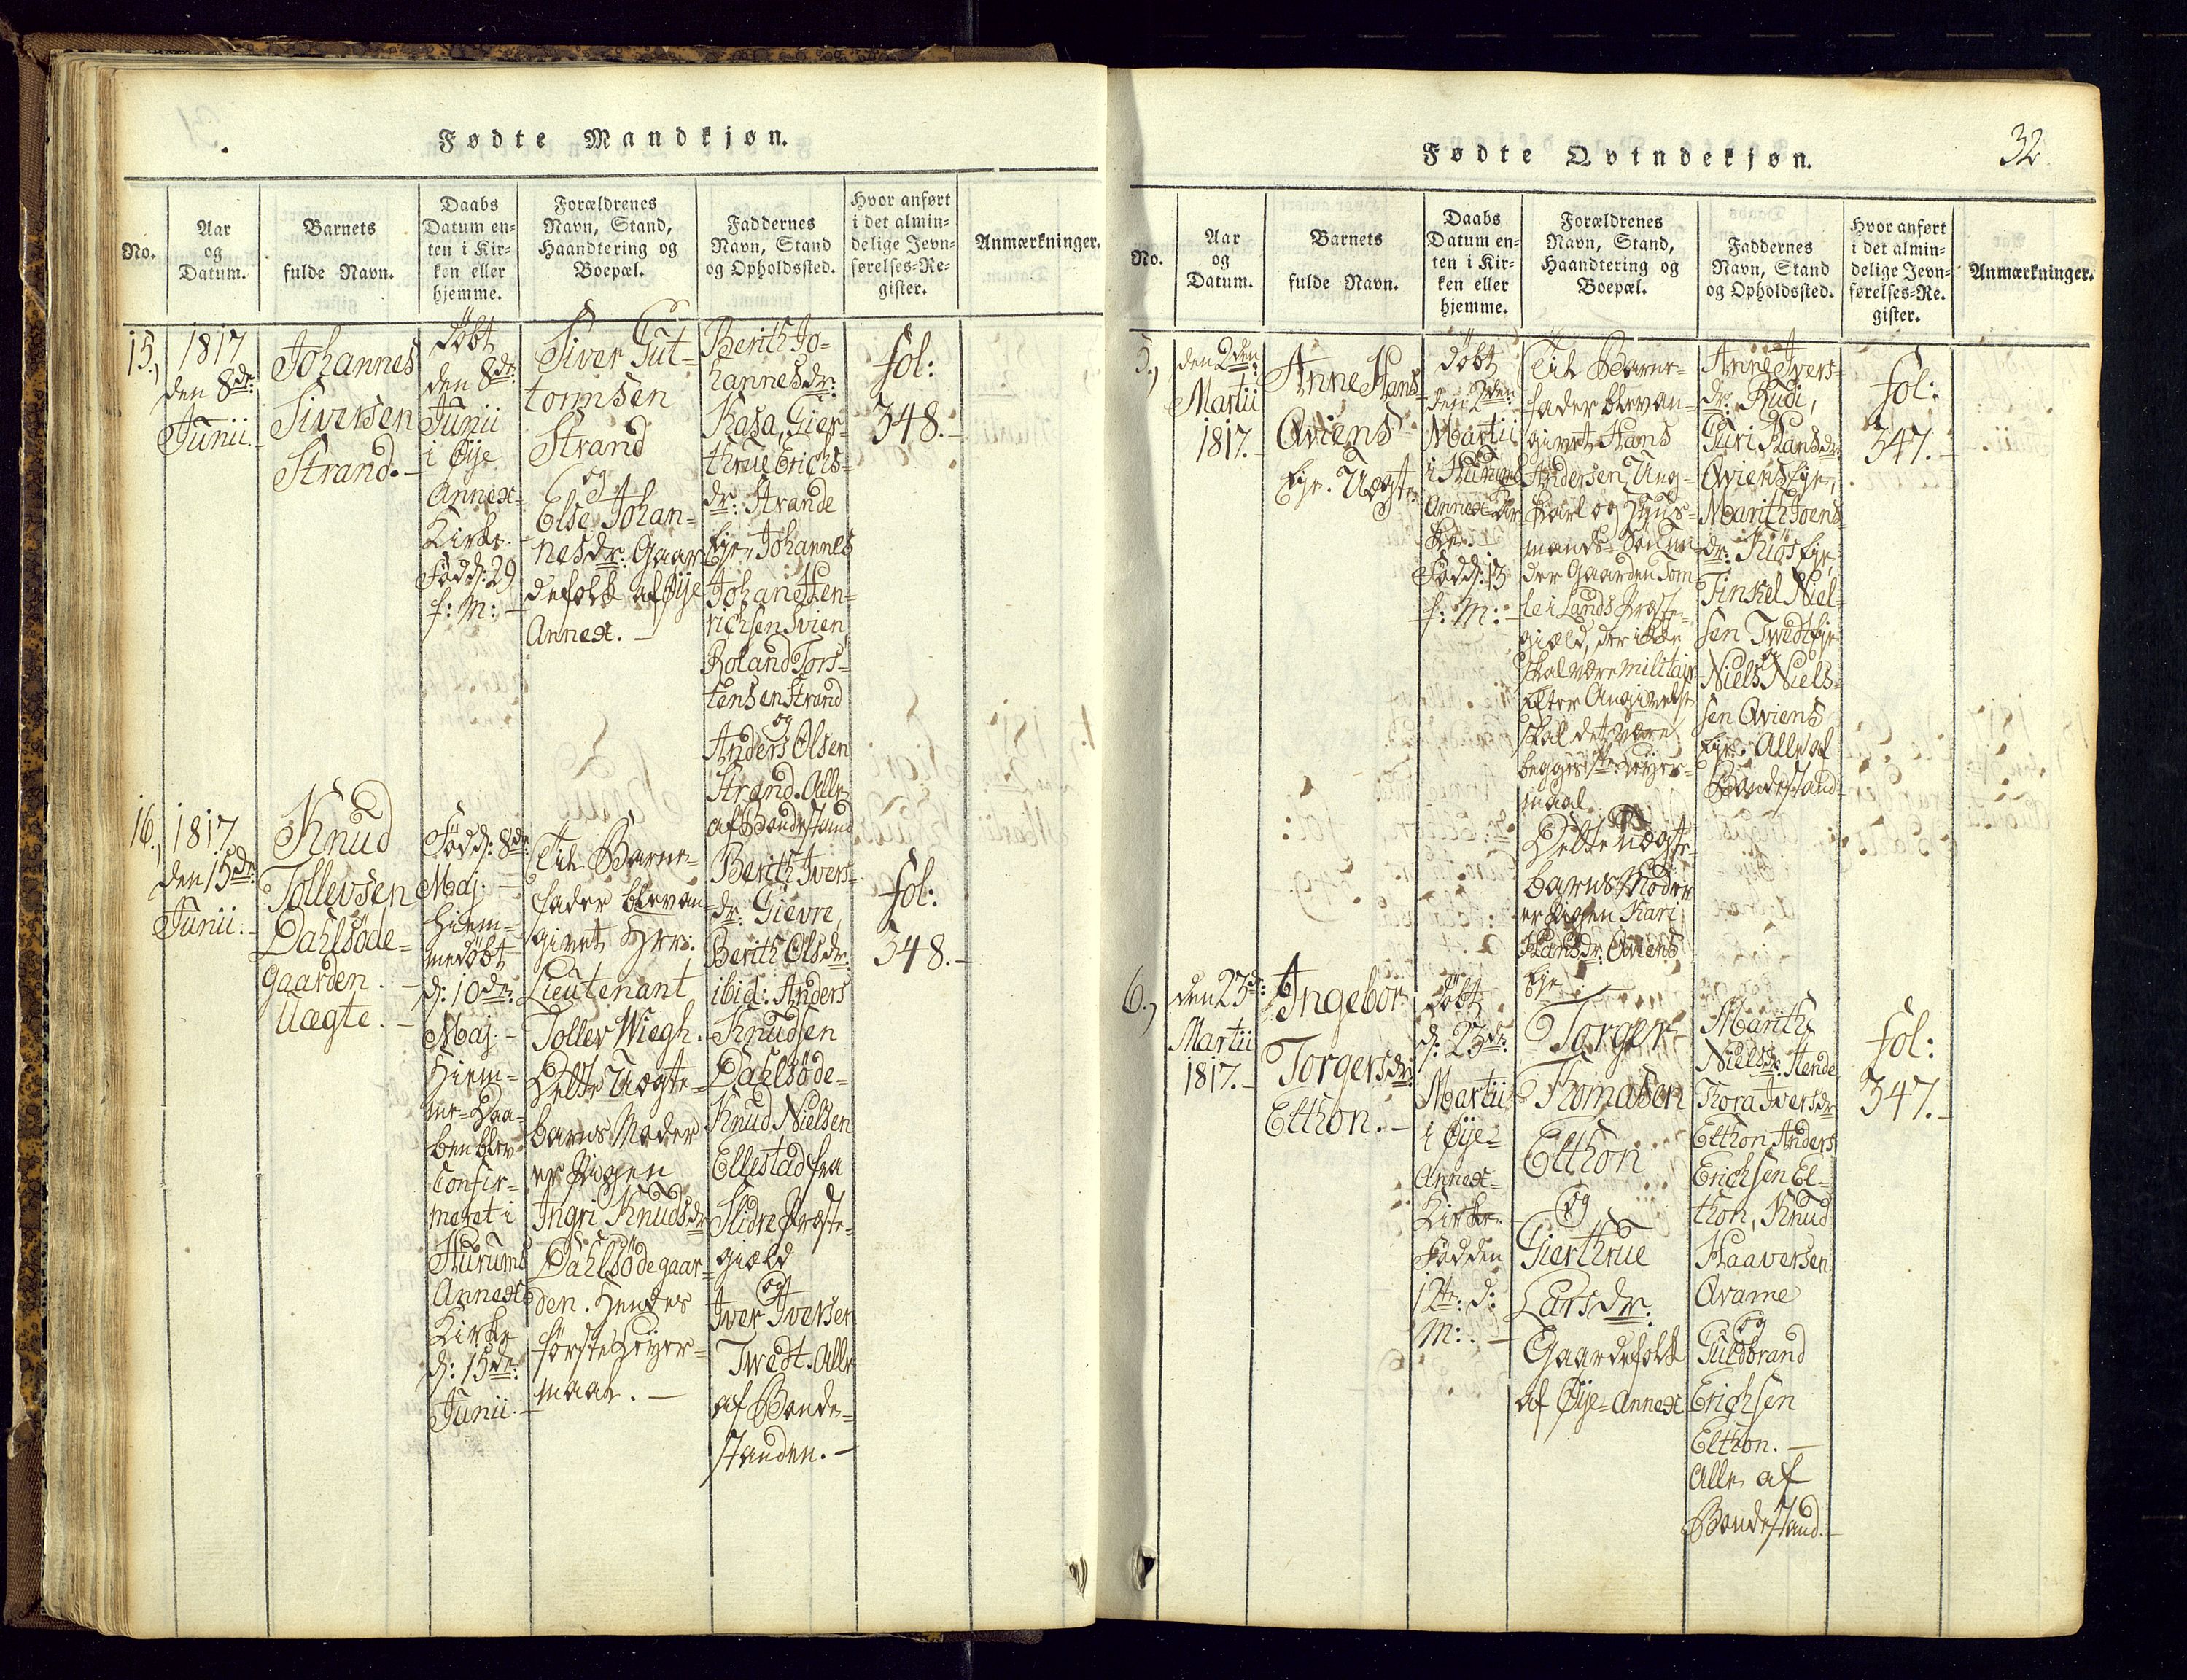 Fødte Mandkjøn.
No.
Aar
og
Datum.
Barnets
fulde Navn.
Daabs
Datum en-
ten i Kir-
ken eller
hjemme.
Forældrenes
Navn, Stand,
Haandtering og
Boepæl.
Faddernes
Navn, Stand
og Opholdssted.
Hvor anført
i det almin-
delige Jevn-
førelses-Re-
gister.
Anmærkninger.
15.,
1817
den 8de:
Junii.-
Johannes
Siversen
Strand.-
Döbt
den 8de:
Junii
i Øije
Annex-
Kirke.
Född: 29
f: M: -
Siver Gut-
tormsen
Strand
og
Else Johan-
nesdr: Gaar-
defolk af Øije
Annex. -
Berith Jo-
hannesdr:
Kasa, Gier-
thrue Erichs-
dr: Strande
Eje, Johannes
Johan Hen-
richsen Svien
Roland Tors-
tensen Strand
og
Anders Olsen
Strand. Alle
af Bondestand
fol:
348.-
16.,
1817.
den 15de:
Junii.-
Knud
Tollevsen
Dahlsöde-
gaarden. -
Uægte. -
Född: 8de:
Maj. -
hiem-
medöbt
d: 10de:
Maj. -
Hiem-
me-Daa-
ben blev
Confir-
meret i
Hurums
Annex
Kirke
d: 15de:
Junii.-
Til Barne-
fader blev an-
givet Hrr:
Lieutenant
Tollev Wiegh.
Dette Uægte-
barns Moder
er Pigen
Ingri Knudsdr
Dahlsödegaar-
den. Hendes
første Leyer-
maal. -
Berith Ivers-
dr: Gievre,
Berith Olsdr:
ibid: Anders
Knudsen
Dahlsöde-
Knud Nielsen
Ellestad fra
Slidre Præste-
giæld
og
Iver Iversen
Twedt. Alle
af Bonde-
standen. -
fol:
348.-
Fødte Qvindekjøn.
32
No.
Aar
og
Datum.
Barnets
fulde Navn.
Daabs
Datum en-
ten i Kir-
ken eller
hjemme.
Forældrenes
Navn, Stand,
Haandtering og
Boepæl.
Faddernes
Navn, Stand
og Opholdssted.
Hvor anført
i det almin-
delige Jevn-
førelses-Re-
gister.
Anmærkninger.
5.,
den 2den
Martii
1817.-
Anne Hans
Qviens
Eje. Uægte
Döbt
den 2den
Martii
i Hurums
Annex Kir-
ke. -
Född: 13
f: M: -
Til Barne-
fader blev an-
givet Hans
Andersen Ung-
karl og Huus-
mands Sön un-
der Gaarden Tom-
le i Lands Præste-
giæld, der ikke
skal være Militair
Efter Angivelse
skal det være
begges 1ste Leyer-
maal.
Dette uægte-
barns Moder
er Pigen Kari
Hansdr: Qviens
Eje.
Anne Ivers-
dr: Rudi,
Guri Hansdr:
Qviens Eje,
Marith Joens-
dr: Kiös Eje,
Tinkel Niel-
sen Twedt Eje
og
Niels Niels-
sen Qviens
Eje. Alle af
Bondestand-
fol:
347.-
6.,
den 23de:
Martii
1817.-
Ingebor
Torgersdr:
Elthon.-
Döbt
d: 23de:
Martii
i Øije-
Annex-
Kirke.
Född den
12te: d:
M: -
Torger
Thomasen
Elthon
og
Gierthrue
Larsdr:
Gaardefolk
af Øije-Annex
Marith
Nielsdr: Hende
Thora Iversdr:
Elthon Anders
Erichsen El-
thon, Knud
Haaversen
Qvame
og
Guldbrand
Erichsen
Elthon. -
Alle af
Bondestand.-
fol:
347.-